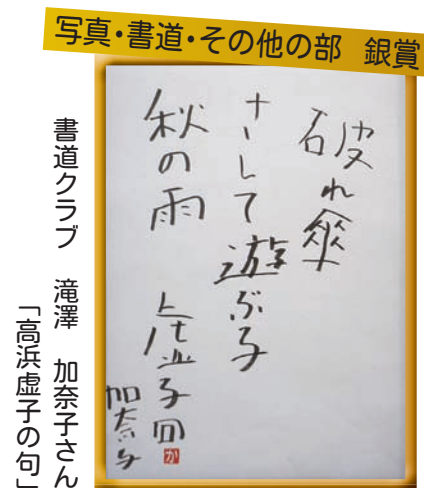 写真・書道・その他の部　銀賞
破れ傘
さして遊ぶ子
秋の雨　虚子句
加奈子
か
書道クラブ　滝澤　加奈子さん
「高浜虚子の句」